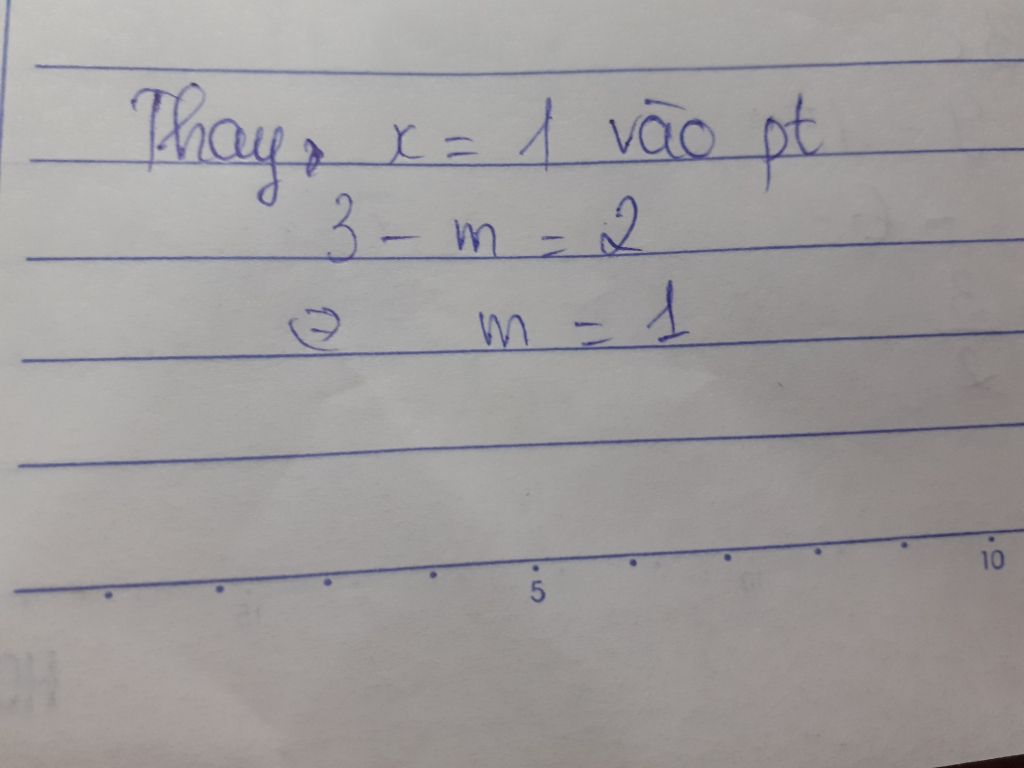 Thay, x = 1 vào pt
3 - m = 2
⇔ m = 1
5
10